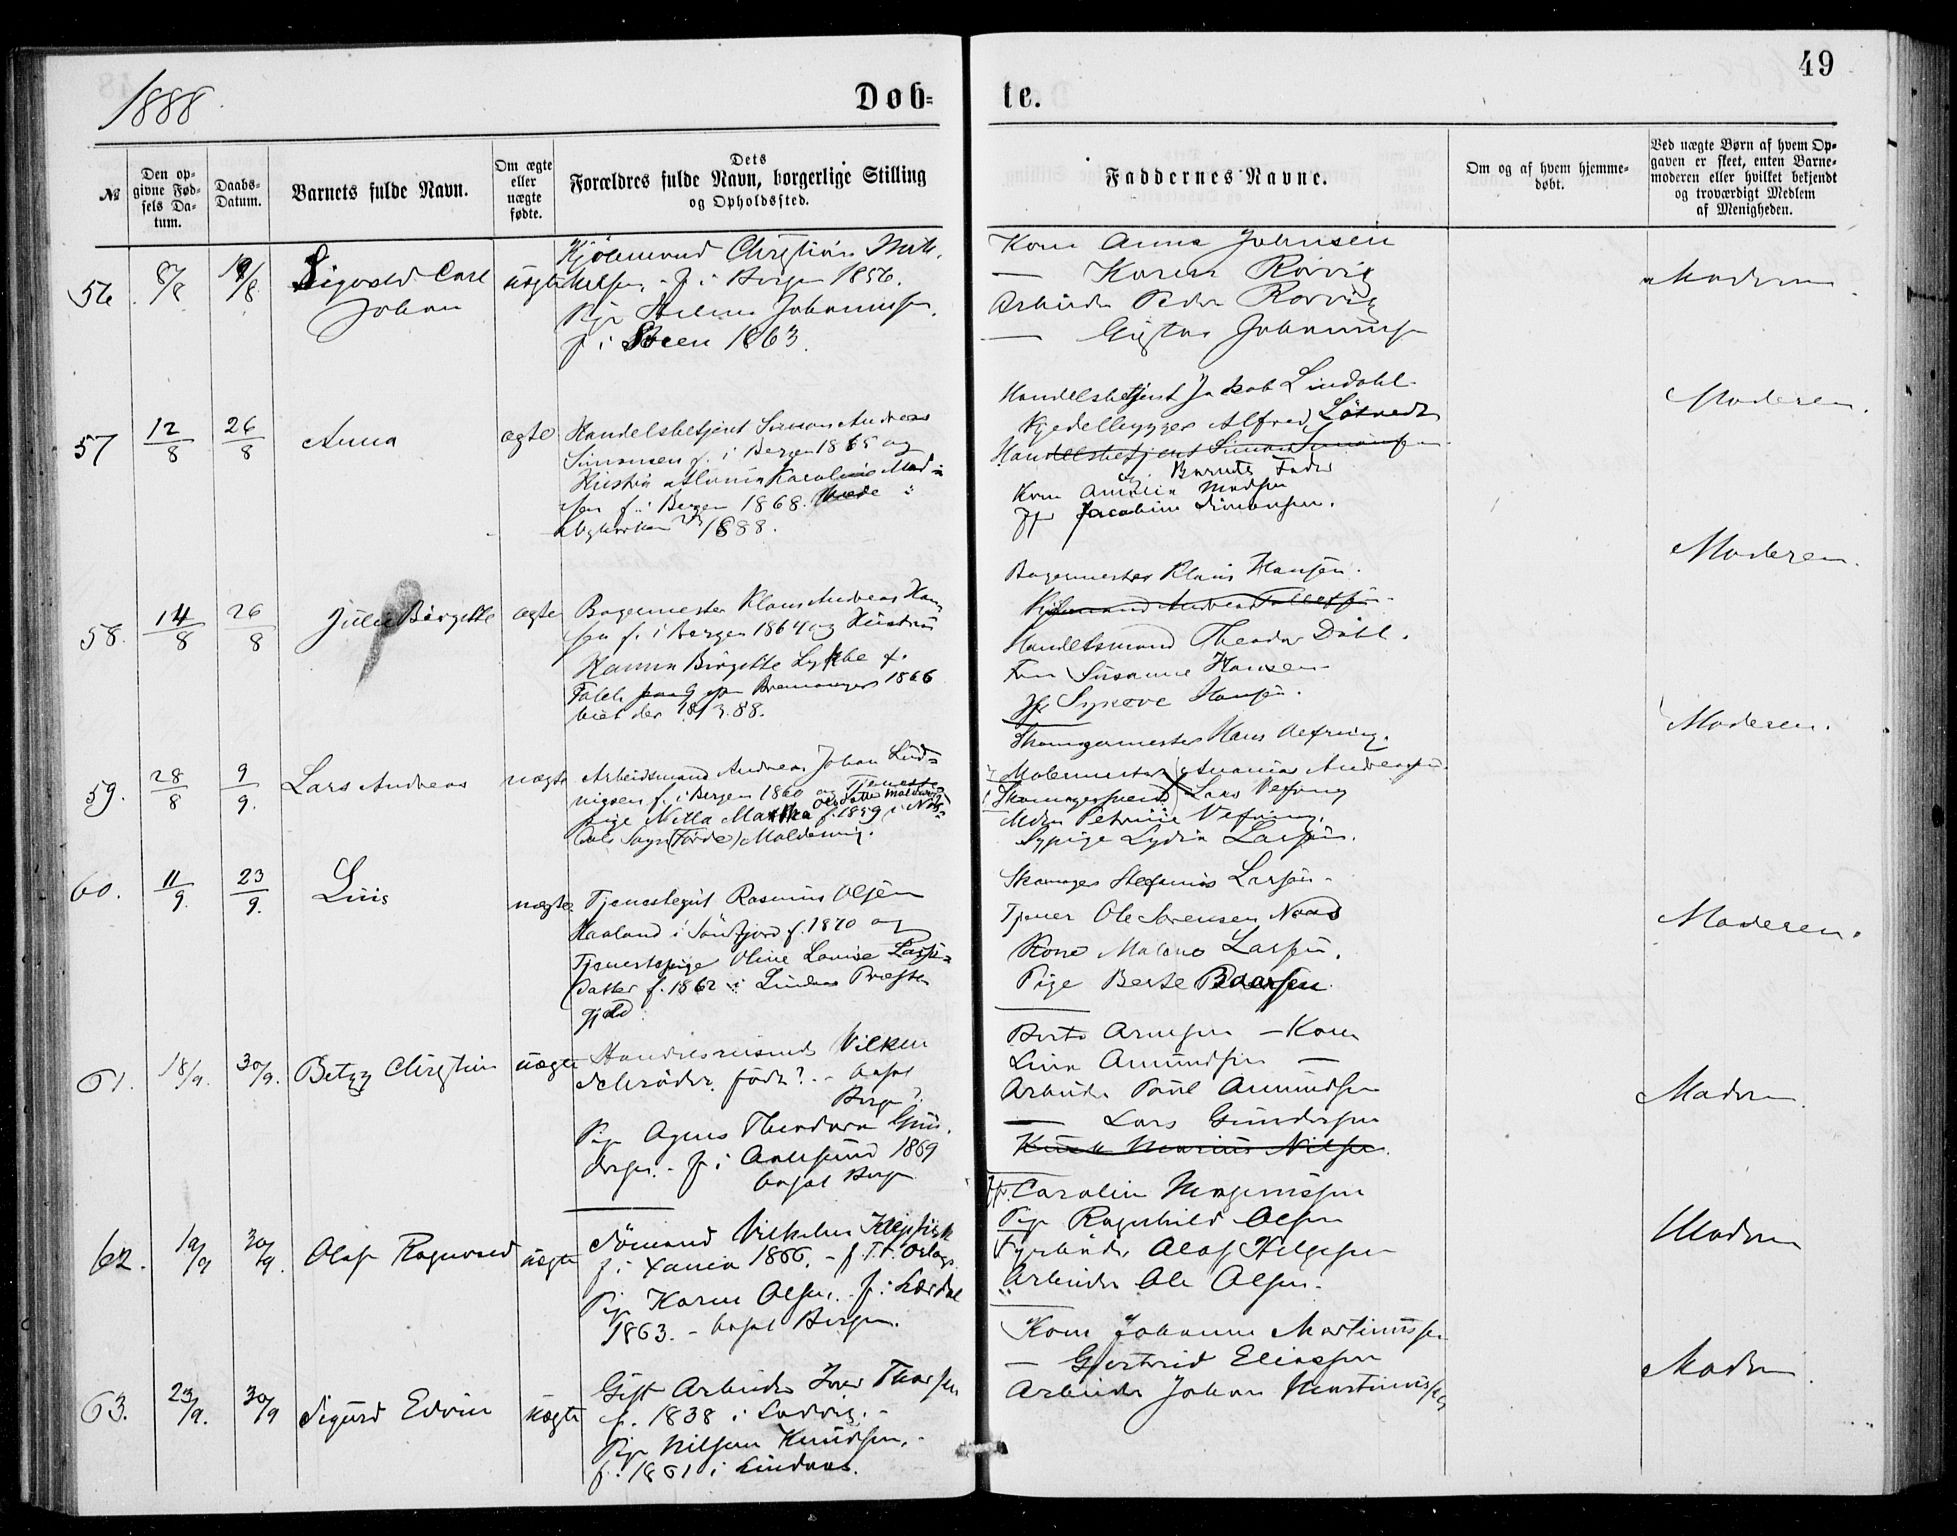 49
1888.
Døb=
te.
№
Den op=
givne Fød=
sels Da=
tum.
Daabs=
Datum.
Barnets fulde Navn.
Om ægte
eller
uægte
fødte.
Dets
Forældres fulde Navn, borgerlige Stilling
og Opholdssted.
Faddernes Navne.
Om og af hvem hjemme=
døbt.
Ved uægte Børn af hvem Op=
gaven er skeet, enten Barne=
moderen eller hvilket bekjendt
og troværdigt Medlem
af Menigheden.
56. 8/8 19/8 Sigvald Carl
Johan
uægte
Kjøbmand Christian
f. i Bergen 1856.
Pige Johannessen,
f. i 1863.
Kone Anna Johnsen
— Karen Rørvig
Arbeider Peder Rørvig
— Gustav Johannessen
Moderen
57 12/8 26/8 Anna
ægte
Handelsbetjent Simon Andreas
Simonsen f. i Bergen 1865 og
Hustru Karoline Mad=
sen f. i Bergen 1868.
1888.
Handelsbetjent Jakob Lindahl
Kjedellægger Alfred
Handelsbetjent Simon Simonsen
Barnets Fader
Kone Amalia Madsen
Jfr Jacobine Simonsen.
Moderen.
58. 14/8 26/8 Julie Birgitte
ægte
Bagermester Klaus Andreas Han=
sen f. i Bergen 1864 og Hustru
Hanna Birgitte Lykke f.
Bremanger 1866
viet den 18/3.88.
Bagermester Klaus Hansen.
Handelsmand Theodor Dahl.
Fru Susanne Hansen
Jfr Synneve Hansen.
Moderen.
59. 28/8 9/9. Lars Andreas
uægte
Arbeidsmand Andreas Johan Lud=
vigsen f. i Bergen 1860 og Tjeneste=
pige Nilla Martha f. 1859 i
Sogn (Førde)
Skomagermester Hans Vefring.
Malermester Ananias Andreassen
Skomagersvend Lars Vefring
Madm Petrine Vefring.
Sypige Lydia Larsen.
Moderen.
60. 11/9. 23/9. Luis
uægte.
Tjenestegut Rasmus Olsen
Haaland i Søndfjord f. 1870 og
Tjenestepige Oline Louise Lars=
datter f. 1862 i Lindaas Præste=
gjeld.
Skomager Stefanus Larsen.
Tjener Ole Sørensen
Kone Malene Larsen.
Pige Berte
Moderen.
61. 18/9. 30/9. Betzy Christine
uægte
Handelsreisende Vilken
Schrøder, født? – bosat
Bergen?
Pige Agnes Theodora Gun=
dersen. – f. i Aalesund 1869
bosat Bergen
Berte Arnesen – Kone
Lina Amundsen —
Arbeider Poul Amundsen
— Lars Gundersen
Marius Nilsen.
Moderen.
62. 19/9 30/9. Olaf Ragnvald
uægte
Sømand Vilhelm
f. i Xania 1866. – f. T.
Pige Karen Olsen, – f. i Lærdal
1863. – bosat Bergen.
Jfr. Carolin Magnussen
Pige Ragnhild Olsen
Fyrbøder Olaf Helgesen
Arbeider Ole Olsen.
Moderen
63. 23/9. 30/9 Sigurd Edvin
uægte
Gift Arbeider Iver Thorsen
f. 1838 i Ladvig. –
Pige Nilsine Knudsen, –
f. 1861 i Lindaas.
Kone Johanne Martinussen
— Gjertrud Eliassen
Arbeider Johan Martinussen
Moderen.